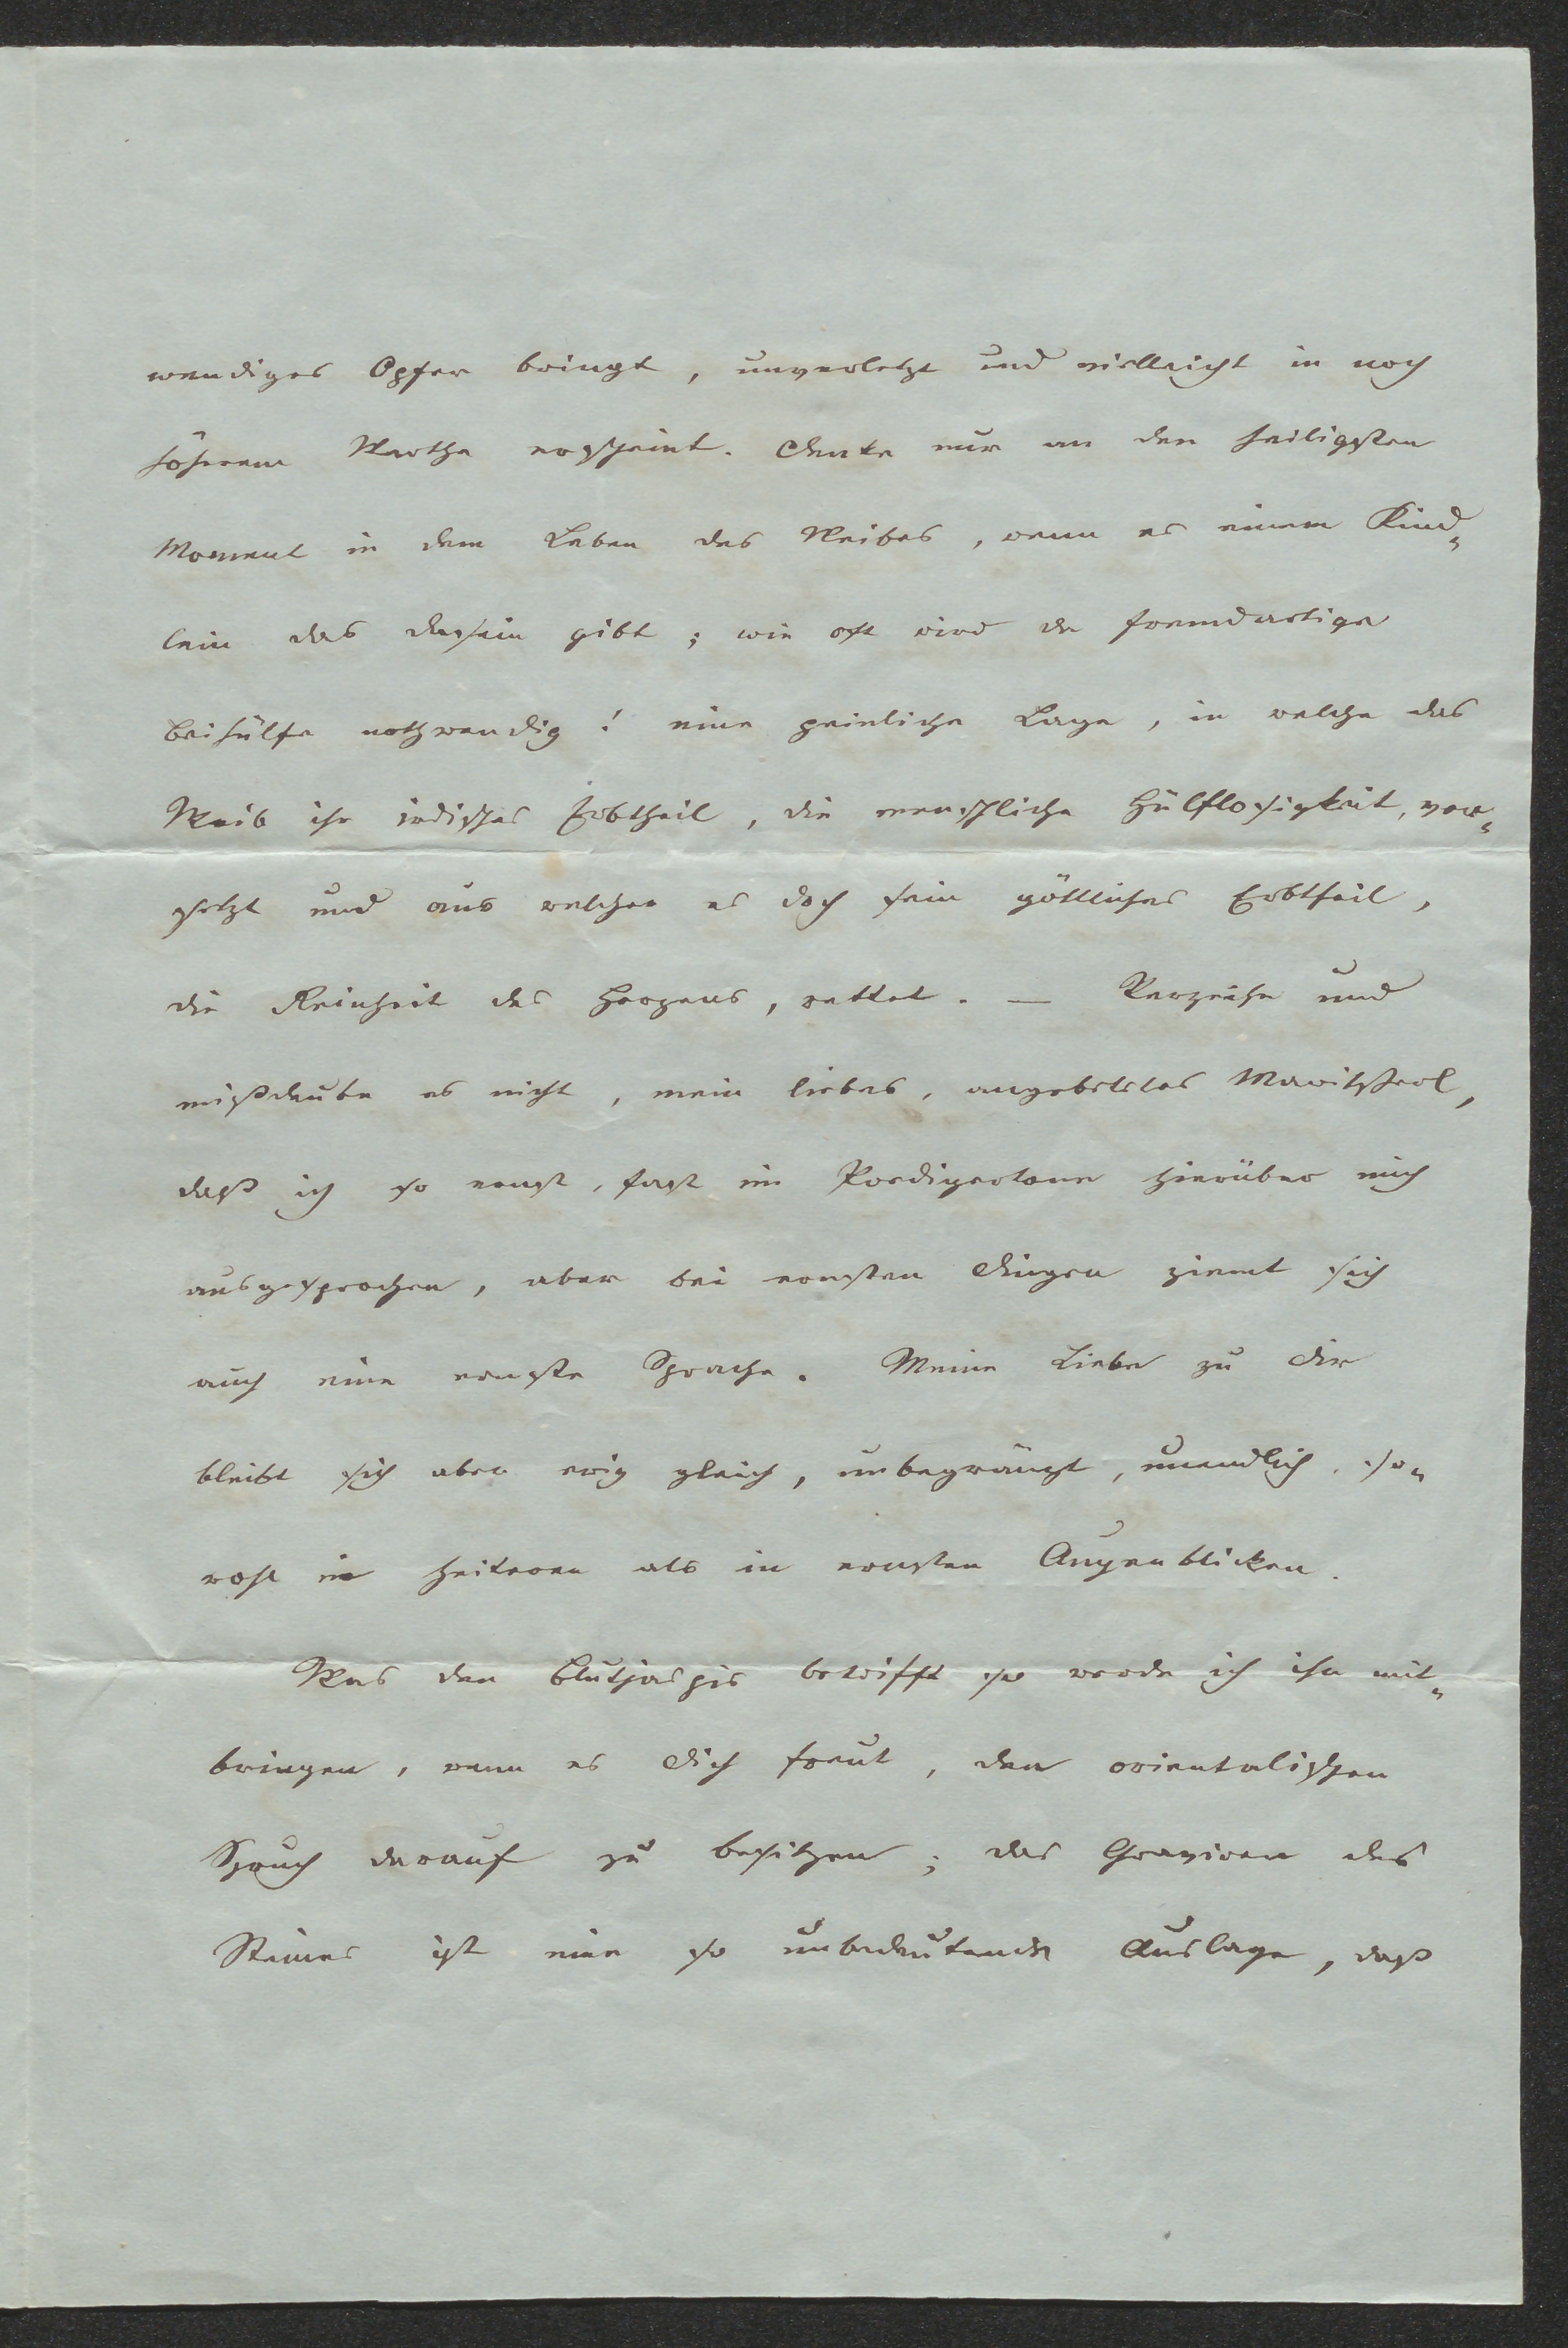 wendiges Opfer bringt, unverletzt und vielleicht in noch
höherem Werthe erscheint. Denke nur an den heiligsten
Moment in dem Leben des Weibes, wenn es einem Kind„
lein das Dasein gibt; wie oft wird da fremdartige
Beihülfe nothwendig! eine peinliche Lage, in welche das
Weib ihr irdisches Erbtheil, die menschliche Hülflosigkeit, ver„
setzt und aus welcher es doch sein göttliches Erbtheil,
die Reinheit des Herzens, rettet. — Verzeihe und
mißdeute es nicht, mein liebes, angebetetes
daß ich so ernst, fast im Predigertone hierüber mich
ausgesprochen, aber bei ernsten Dingen ziemt sich
auch eine ernste Sprache. Meine Liebe zu Dir
bleibt sich aber ewig gleich, unbegränzt, unendlich, so„
wohl in heiteren als in ernsten Augenblicken.
Was den Blutjaspis betrifft so werde ich ihn mit„
bringen, wenn es Dich freut, den orientalischen
Spruch darauf zu besitzen; das Graviren des
Steines ist eine so unbedeutende Auslage, daß